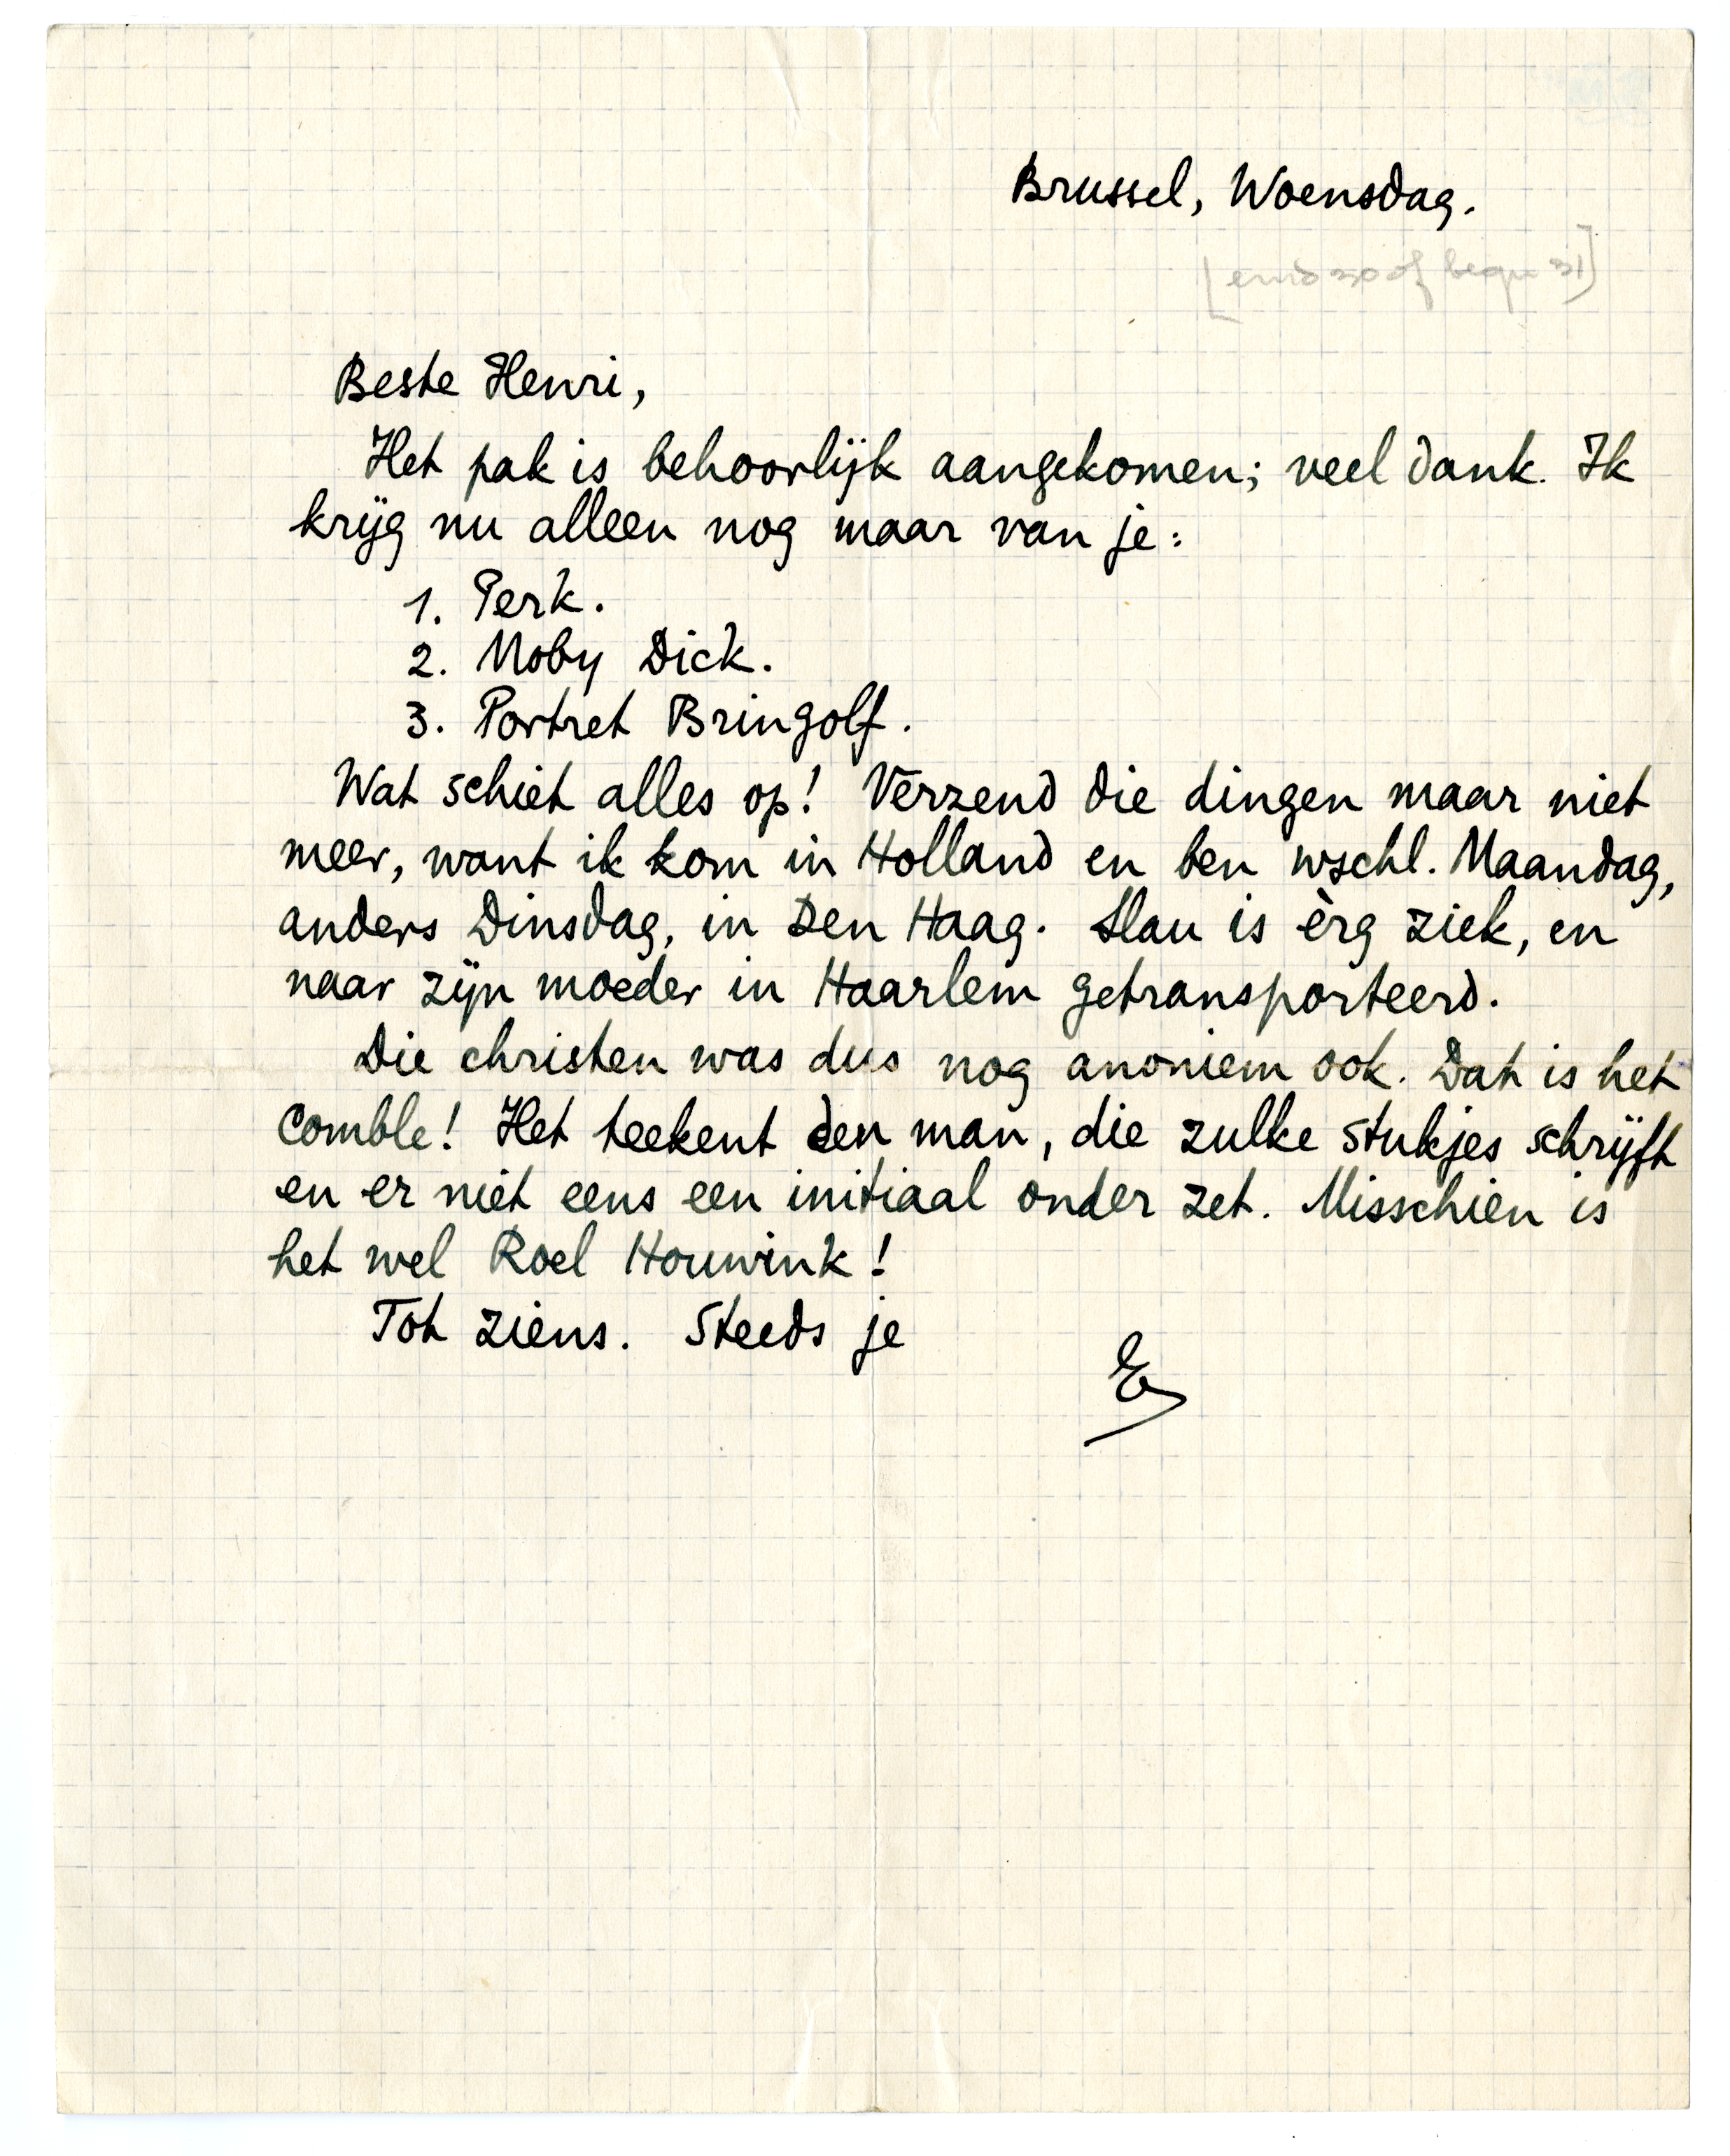 Brussel, Woensdag.
[eind 30 of begin 31]
Beste Henri,
Het pak is behoorlijk aangekomen; veel dank. Ik
krijg nu alleen nog maar van je:
1. Perk.
2. Moby Dick.
3. Portret Bringolf.
Wat schiet alles op! Verzend die dingen maar niet
meer, want ik kom in Holland en ben wschl. Maandag,
anders Dinsdag, in Den Haag. Slau is èrg ziek, en
naar zijn moeder in Haarlem getransporteerd.
Die christen was dus nog anoniem ook. Dat is het
comble! Het teekent den man, die zulke stukjes schrijft
en er niet eens een initiaal onder zet. Misschien is
het wel Roel Houwink!
Tot ziens. Steeds je
E